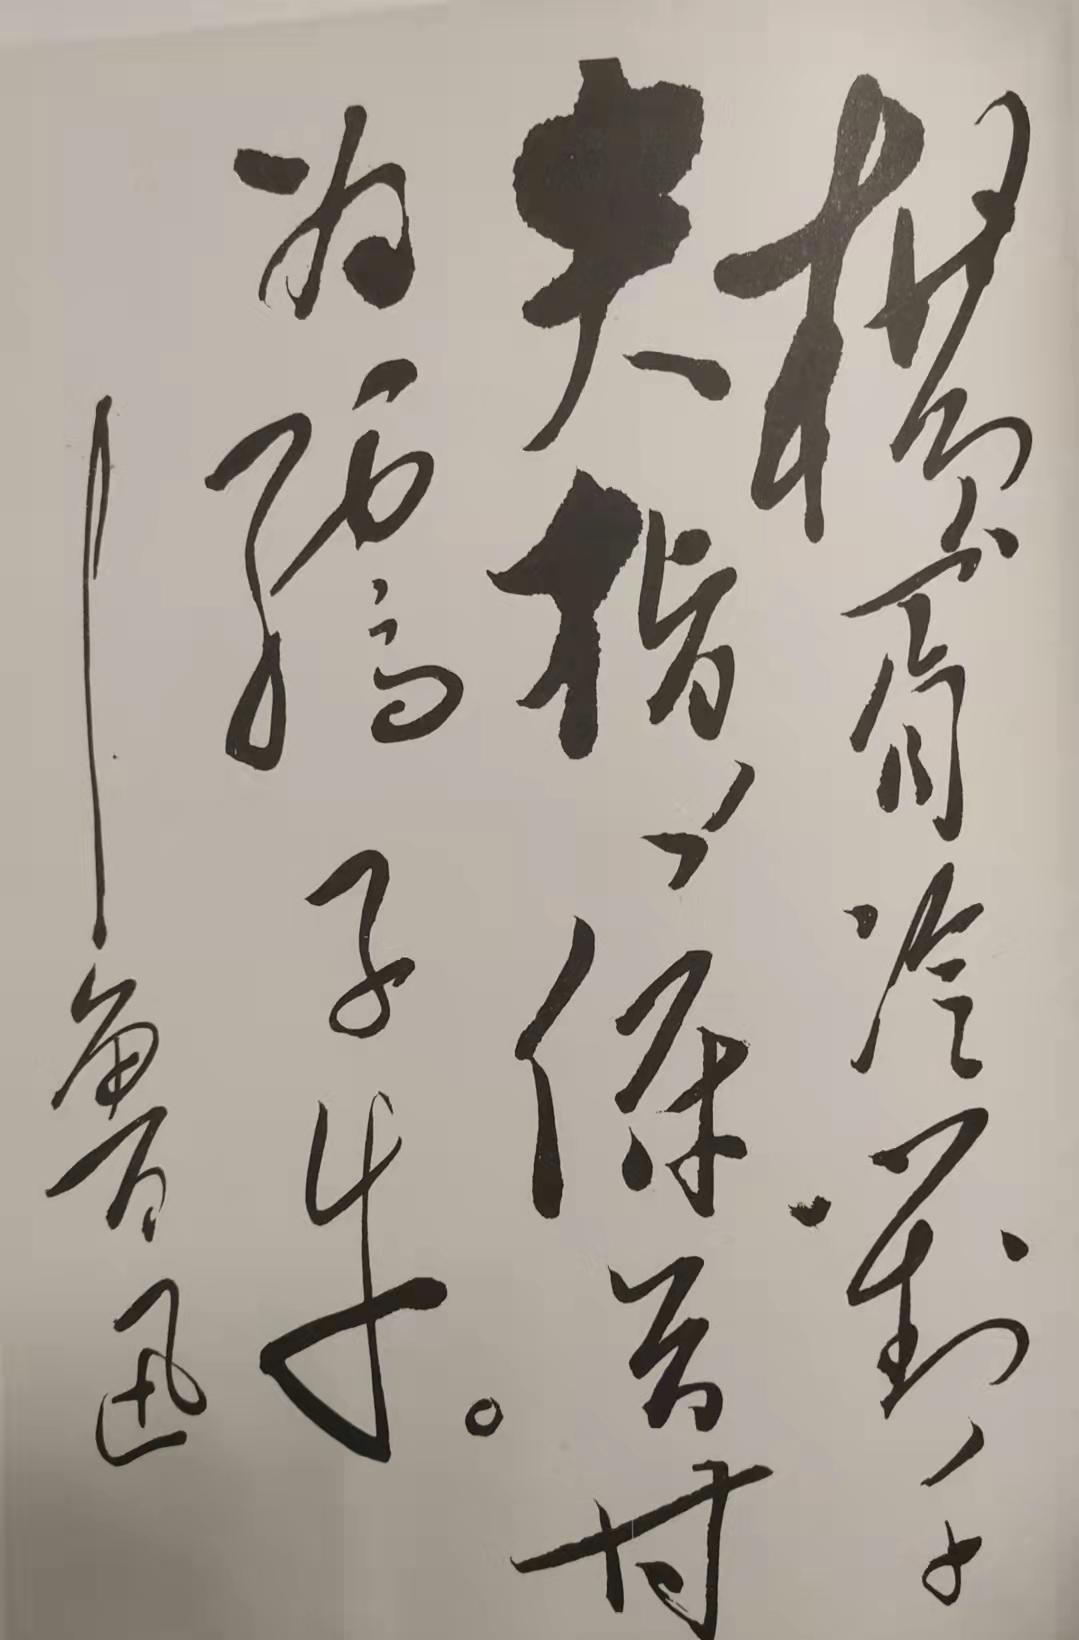 橫眉冷對千
夫指，俯首甘
为孺子牛。
——鲁迅